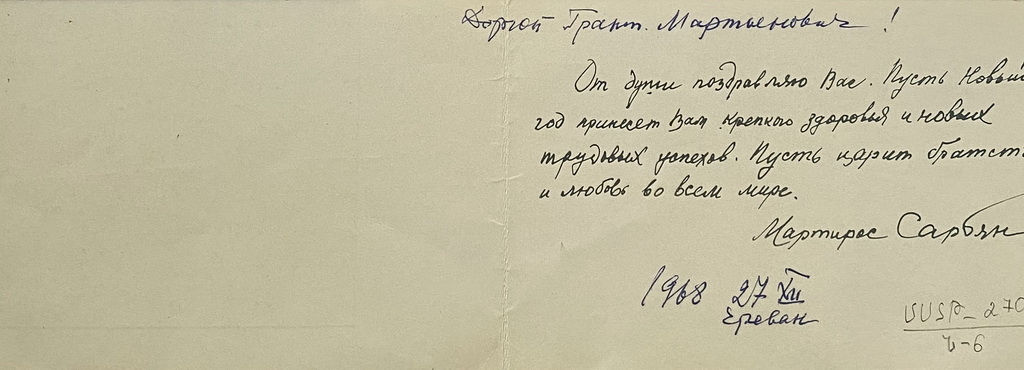 Дорогой Грант Мартынович!
От души поздравляю Вас. Пусть Новый
год принесет Вам крепкого здоровья и новых
трудовых успехов. Пусть царит братст
и любовь во всем мире.
Мартирос Сарьян
1968 27 XII
Ереван
270
6